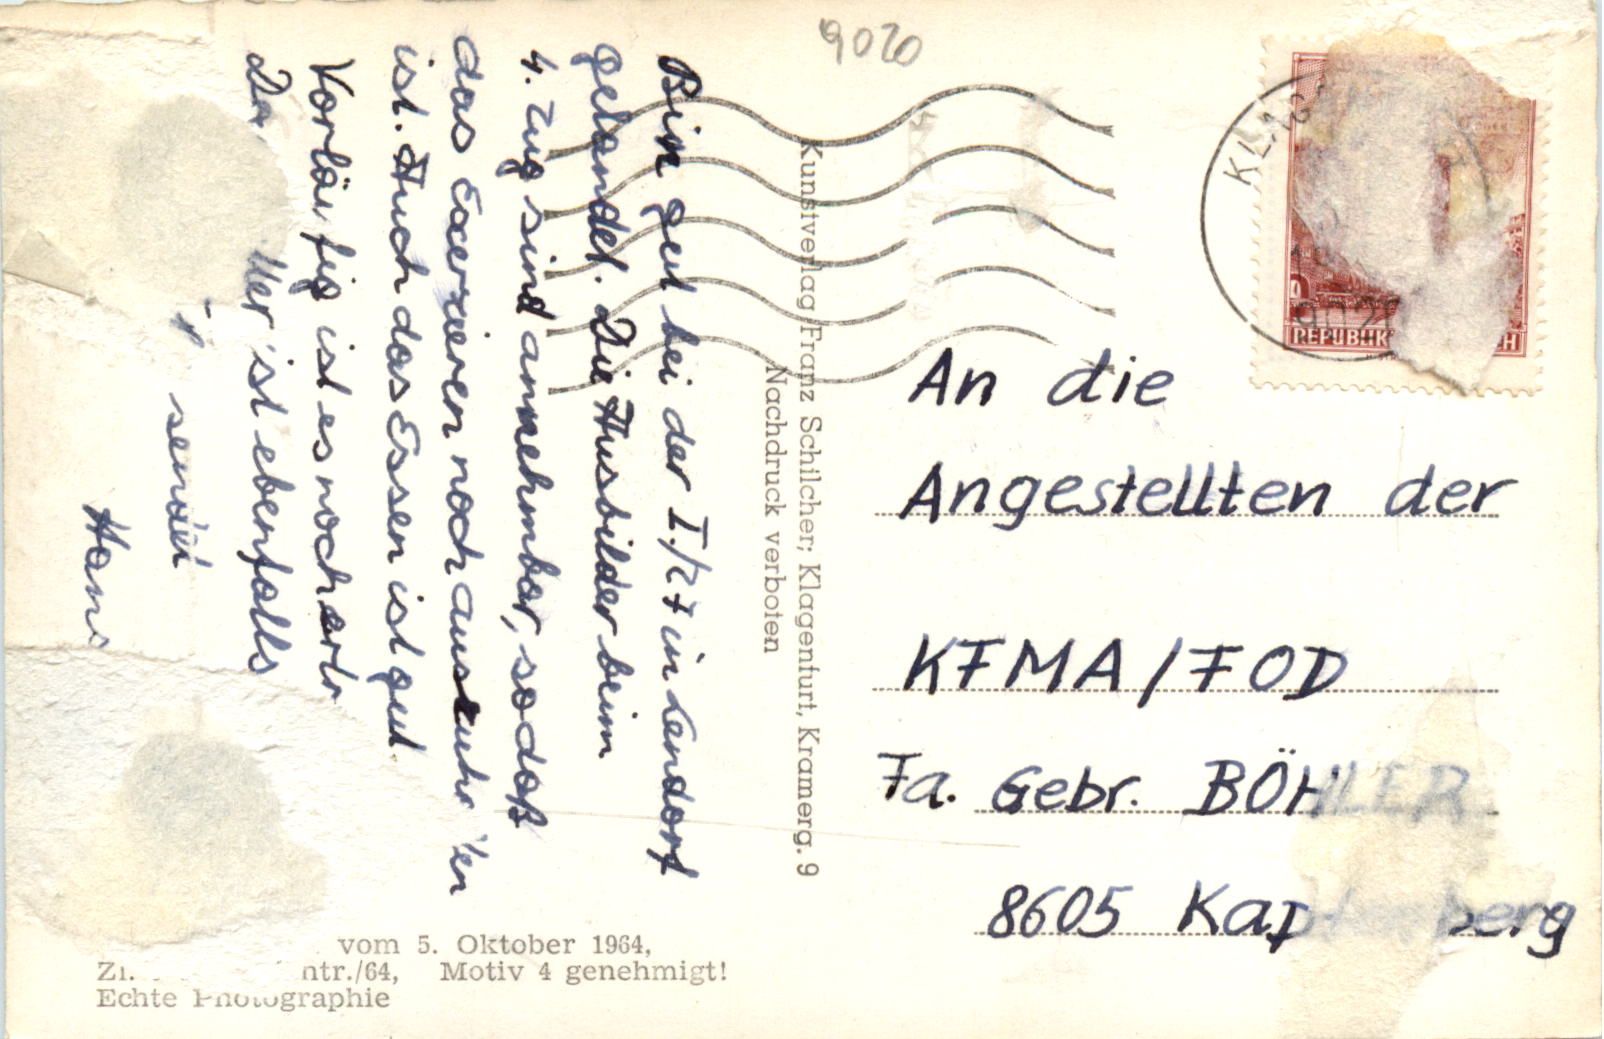 9020
Bin gut bei der I./ in Lendorf
gelandet. Die Ausbilder beim
4. Zug sind annehmbar, sodaß
das Exerzieren noch
ist. Auch das Essen ist gut.
Vorläufig ist es noch
ist ebenfalls
Hans
Kunstverlag Franz Schilcher; Klagenfurt, Kramerg. 9
Nachdruck verboten
REPUBLIK
An die
Angestellten der
KFMA/FOD
Fa. Gebr. BÖHLER
8605 Kapfenberg
vom 5. Oktober 1964,
ntr./64, Motiv 4 genehmigt!
Echte Photographie